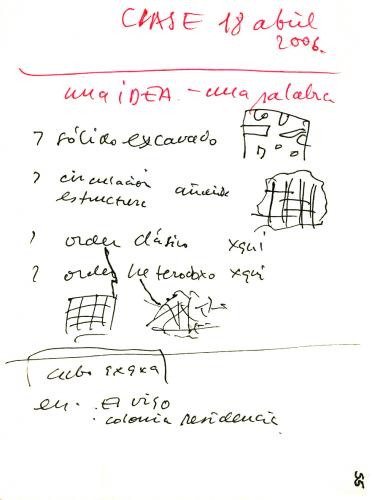 CLASE 18 abril
2006.
una iDEA. - una palabra
? sólido excavado
? circulación
estructura
? orden clásico xqui
? orden heterodoxo xqui
cubo 9x9x9
en. . El viso
. colonia residencia
55